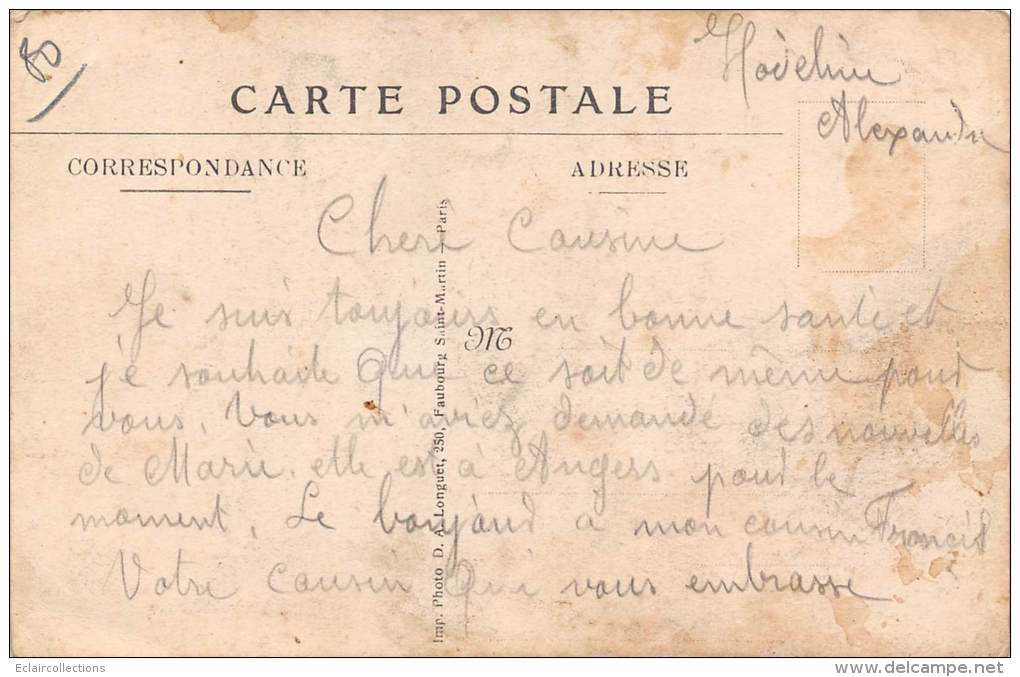 80
Hodeline
Alexandre
CARTE POSTALE
CORRESPONDANCE
ADRESSE
Chere Cousine
Je suis toujours en bonne santé et
je souhaite que ce soit de même pour
vous. Vous m'aviez demande des nouvelles
de Marie. elle est à Angers pour le
moment. Le bonjour a mon cousin Francis
Votre cousin qui vous embrasse
Imp. Photo D. A. Longuet, 250, Faubourg Saint-Martin — Paris
M
Eclaircollections
www.delcampe.net